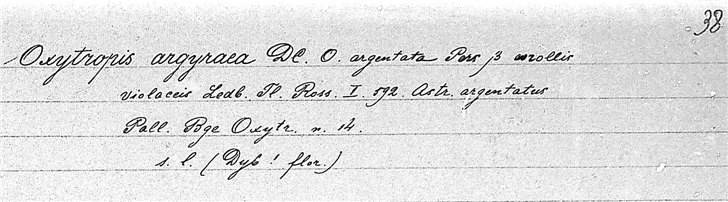 38
Oxytropis argyraea DC. O. argentata Pers β corollis
violaceis Ledb. Fl. Ross. I. 592. Astr. argentatus
Pall. Bge Oxytr. n. 14.
s. l. ( ! flor.)